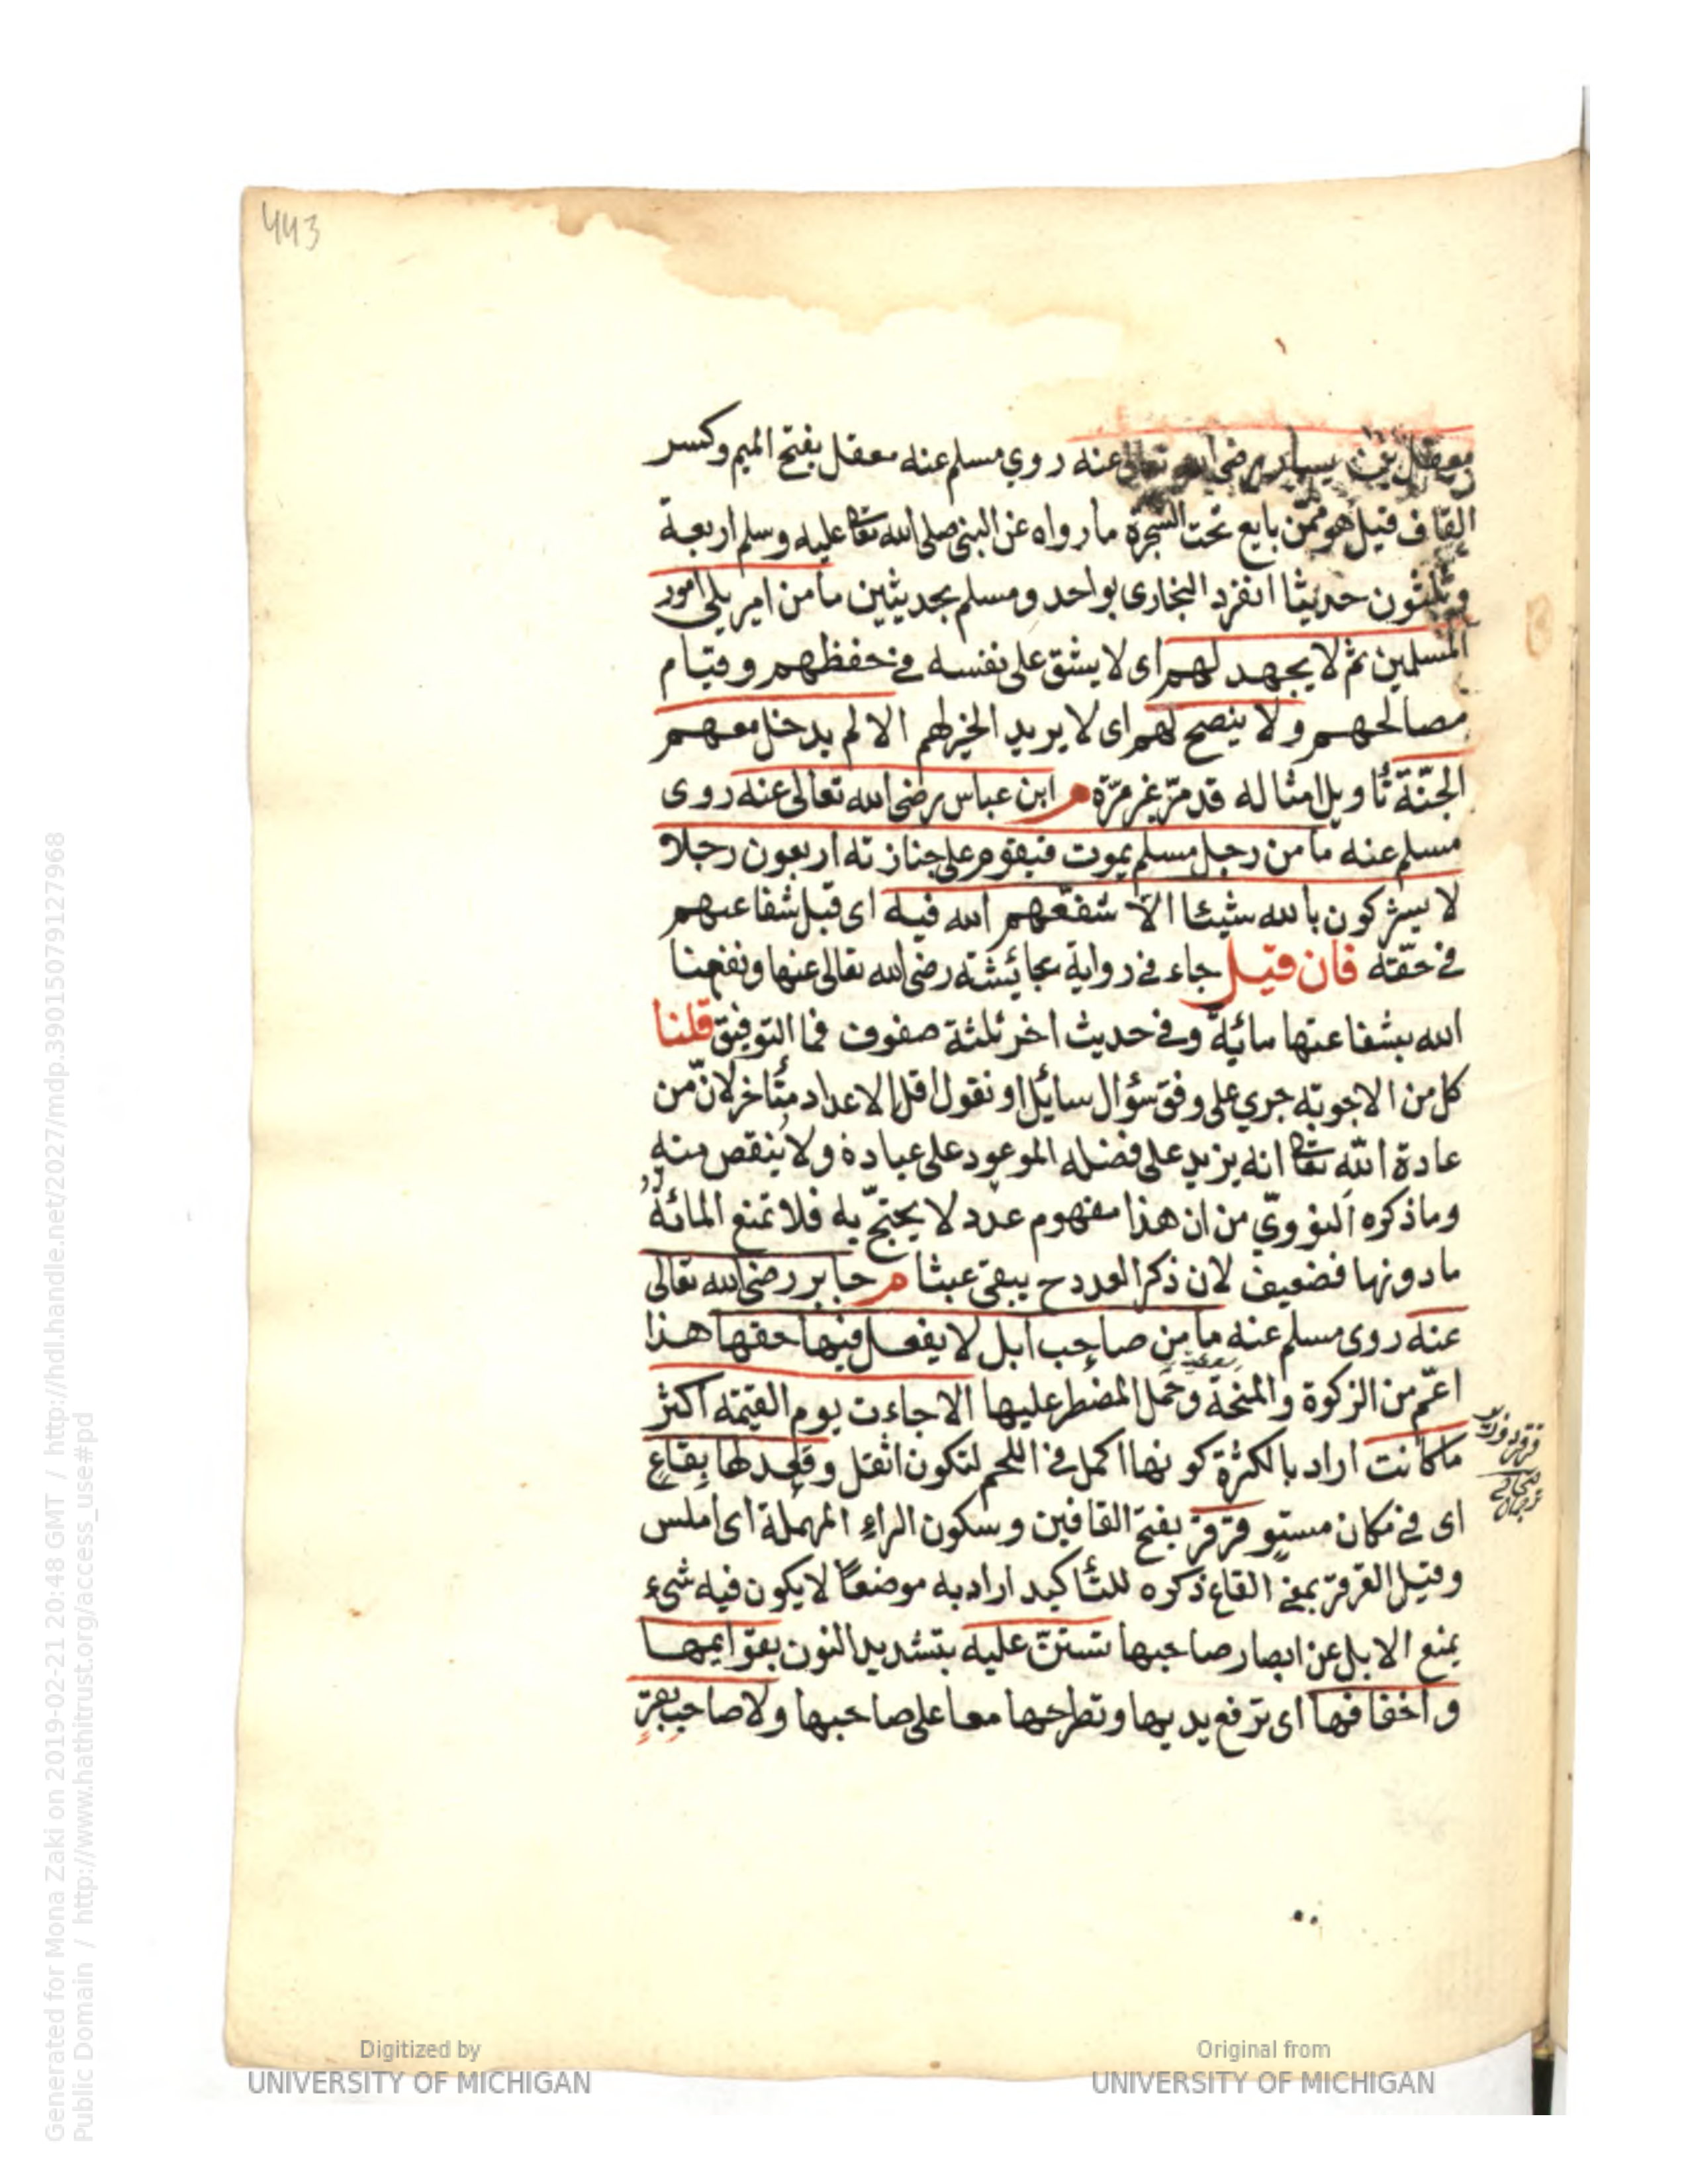 443
معقل بن يسار رضى الله تعالى عنه روي مسلم عنه معقل بفتح الميم وكسر
القاف قيل هو ممّن بايع تحت الشجرة ما رواه عن النبى صلى الله تعا عليه وسلم اربعة
وثلثون حديثا انفرد البخارى بواحد ومسلم بحديثين ما من امير يلى امور
المسلمين ثم لا يجهد لهم اى لا يشق على نفسه فى حفظهم وقيام
مصالحهم ولا ينصح لهم اى لا يريد الخير لهم الا لم يدخل معهم
الجنّة تأويل امثاله قد مرّ غير مرّة م ابن عباس رضى الله تعالى عنه روى
مسلم عنه ما من رجل مسلم يموت فيقوم على جنازته اربعون رجلا
لا يشركون بالله شيئا الا شفّعهم الله فيه اى قبل شفاعتهم
فى حقّه فان قيل جاء فى رواية عائشة رضى الله تعالى عنها
الله بشفاعتها مائية وفى حديث اخر ثلثة صفوف فما التوفيق قلنا
كل من الاجوبة جري على وفق سؤال سائل او نقول اقل الاعداد متأخر لانّ من
عادة اللّه تعا انه يزيد على فضله الموعود على عباده ولا ينقص منه
وما ذكره النوويّ من ان هذا مفهوم عدد لا يحتجّ به فلا تمنع المائة
ما دونها فضعيف لان ذكر العدد ح يبقى عبثا م جابر رضى الله تعالى
عنه روى مسلم عنه ما من صاحب ابل لا يفعل فيها حقها هذا
اعمّ من الزكوة والمنحة وحمل المضطر عليها الا جاءت يوم القيمة اكثر
ما كانت اراد بالكثرة كونها اكمل فى اللحم لتكون اثقل وقعد لها بقاع
اى فى مكان مستو قرقر بفتح القافين وسكون الراء المهملة اى املس
وقيل القرقر بمعنى القاع ذكره للتأكيد اراد به موضعًا لا يكون فيه شىء
يمنع الابل عن ابصار صاحبها تستنّ عليه بتشديد النون بقوايمها
واخفافها اى ترفع يديها وتطرحها معا على صاحبها ولا صاحب بقر
Digitized by
UNIVERSITY OF MICHIGAN
Original from
UNIVERSITY OF MICHIGAN
Generated for Mona Zaki on 2019-02-21 20:48 GMT / http://hdl.handle.net/2027/mdp.39015079127968
Public Domain / http://www.hathitrust.org/access_use#pd